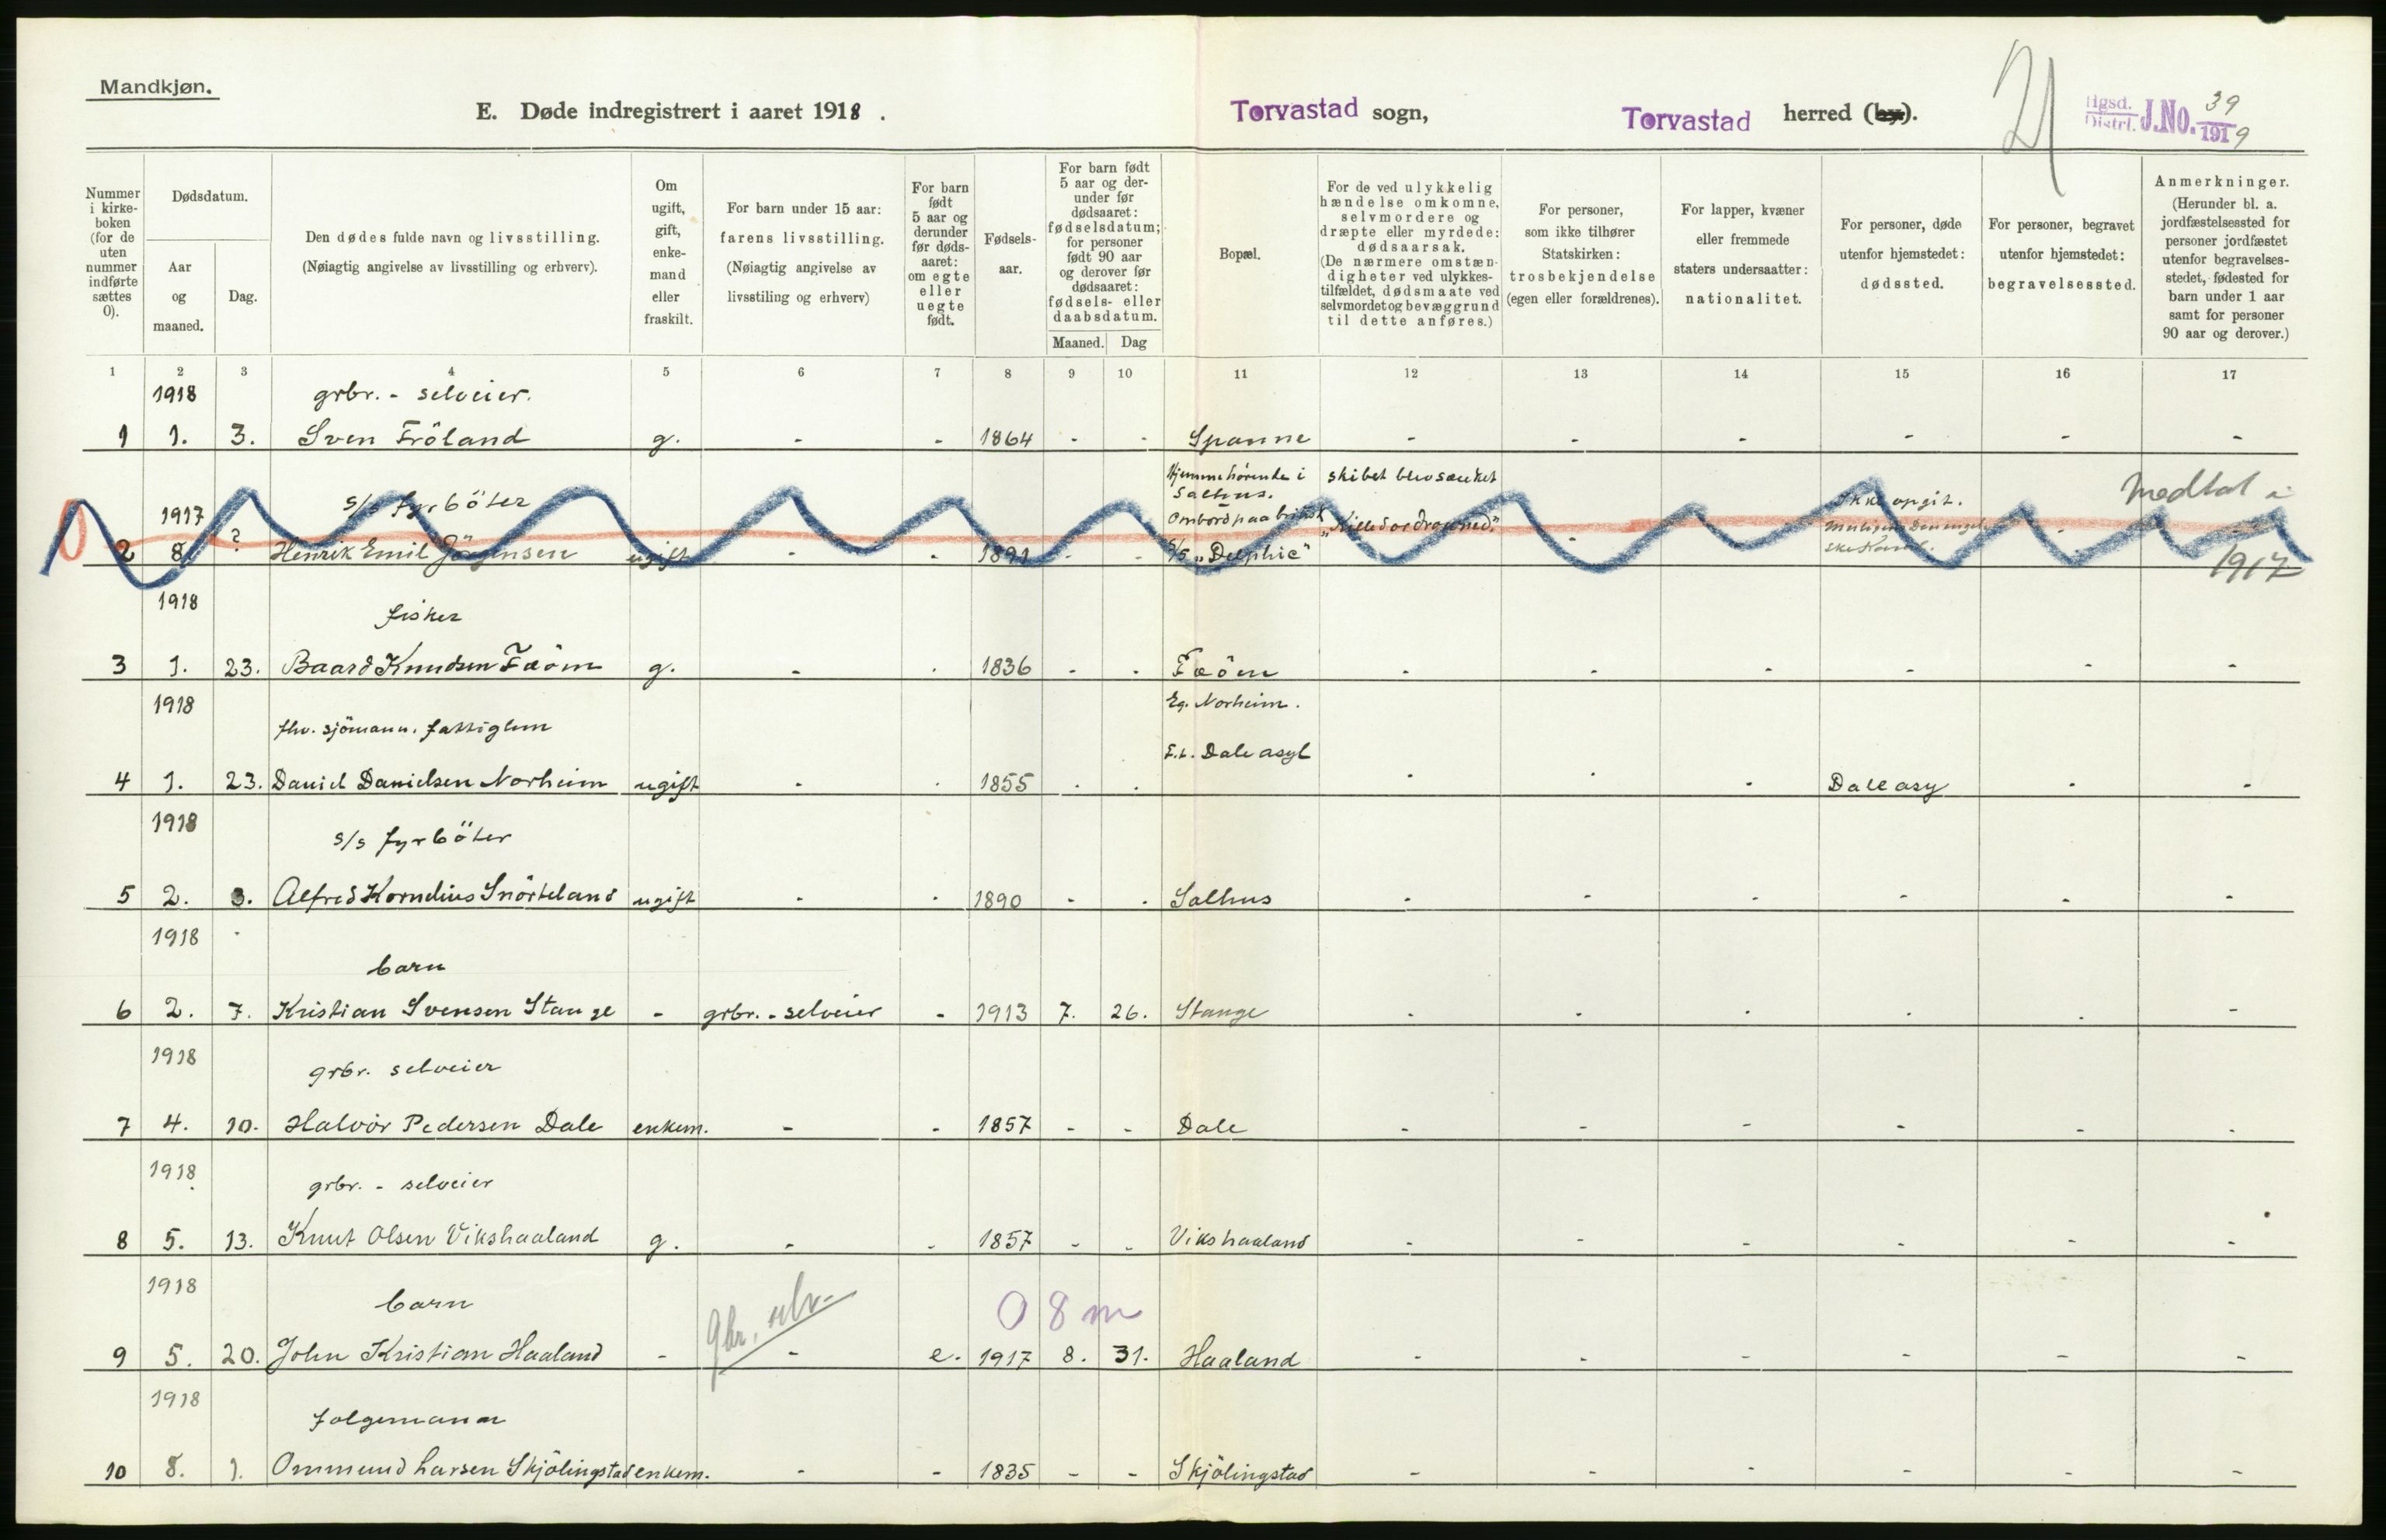 Mandkjøn.
E. Døde indregistrert i aaret 1918.
Torvastad sogn,
Torvastad herred (by).
21
J.No. 39
1919
Nummer i kirkeboken (for de uten nummer indførte sættes 0).
Dødsdatum.
Aar og maaned.
Dag.
Den dødes fulde navn og livsstilling.
(Nøiagtig angivelse av livsstilling og erhverv).
Om ugift, gift, enkemand eller fraskilt.
For barn under 15 aar:
farens livsstilling.
(Nøiagtig angivelse av livsstiling og erhverv)
For barn født 5 aar og derunder før dødsaaret: om egte eller uegte født.
Fødselsaar.
For barn født 5 aar og derunder før dødsaaret: fødselsdatum; for personer født 90 aar og derover før dødsaaret: fødsels- eller daabsdatum.
Maaned. Dag
Bopæl.
For de ved ulykkelig hændelse omkomne, selvmordere og dræpte eller myrdede: dødsaarsak.
(De nærmere omstændigheter ved ulykkestilfældet, dødsmaate ved selvmordet og bevæggrund til dette anføres.)
For personer, som ikke tilhører Statskirken: trosbekjendelse (egen eller forældrenes).
For lapper, kvæner eller fremmede staters undersaatter: nationalitet.
For personer, døde utenfor hjemstedet: dødssted.
For personer, begravet utenfor hjemstedet: begravelsessted.
Anmerkninger.
(Herunder bl. a. jordfæstelsessted for personer jordfæstet utenfor begravelsesstedet, fødested for barn under 1 aar samt for personer 90 aar og derover.)
1 2 3 4 5 6 7 8 9 10 11 12 13 14 15 16 17
1918 grbr. - selveier.
1 1. 3. Sven Fröland g. - - 1864 - - Spanne - - - - - -
Hjemmehörende i Salhus. skibet blev sænket
1917 s/s fyrböter Ombord paa britisk "Killed or drowned." Ikke opgit. Medtat i
0 2 8 ? Henrik Emil Jörgensen ugift - - 1891 - - S/S "Delphic" - - 1917
1918 fisker
3 1. 23. Baard Knudsen Fæöen g. - - 1836 - - Fæöen - - - - - -
1918 Eg. Norheim.
fhv. sjömann. fattiglem
E.t. Dale asyl
4 1. 23. Daniel Danielsen Norheim ugift - - 1855 - - - - - Dale asy - -
1918 s/s fyrböter
5 2. 3. Alfred Kornelius Snörteland ugift - - 1890 - - Salhus - - - - - -
1918 barn
6 2. 7. Kristian Svensen Stange - grbr. - selveier - 1913 7. 26. Stange - - - - - -
1918 grbr. selveier
7 4. 10. Halvor Pedersen Dale enkem. - - 1857 - - Dale - - - - - -
1918 grbr. - selveier
8 5. 13. Knut Olsen Vikshaaland g. - - 1857 - - Vikshaaland - - - - - -
1918 barn gbr. selv. 0 8 m
9 5. 20. John Kristian Haaland - - e. 1917 8. 31. Haaland - - - - - -
1918 Folgemann
10 8. 1. Ommund Larsen Skjölingstad enkem. - - 1835 - - Skjölingstad - - - - - -